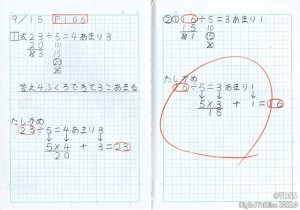 9/15 P106
① 式 23÷5=4あまり3
20 10
3 15
⑳
答え4ふくろできて3こあまる
たしかめ
23÷5=4あまり3
5×4 + 3=23
20
② ① 16÷5=3あまり1
15 10
1 15
20
たしかめ
16÷5=3あまり1
5×3 + 1=16
15